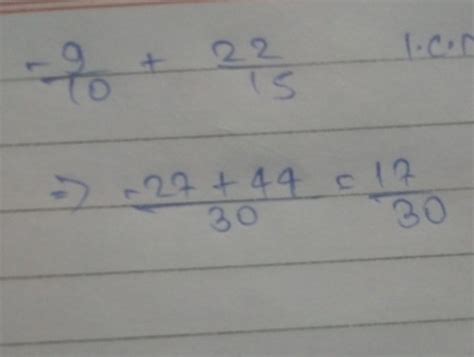 -9/10 + 22/15 l.c.
=> -27 + 44/30 = 17/30